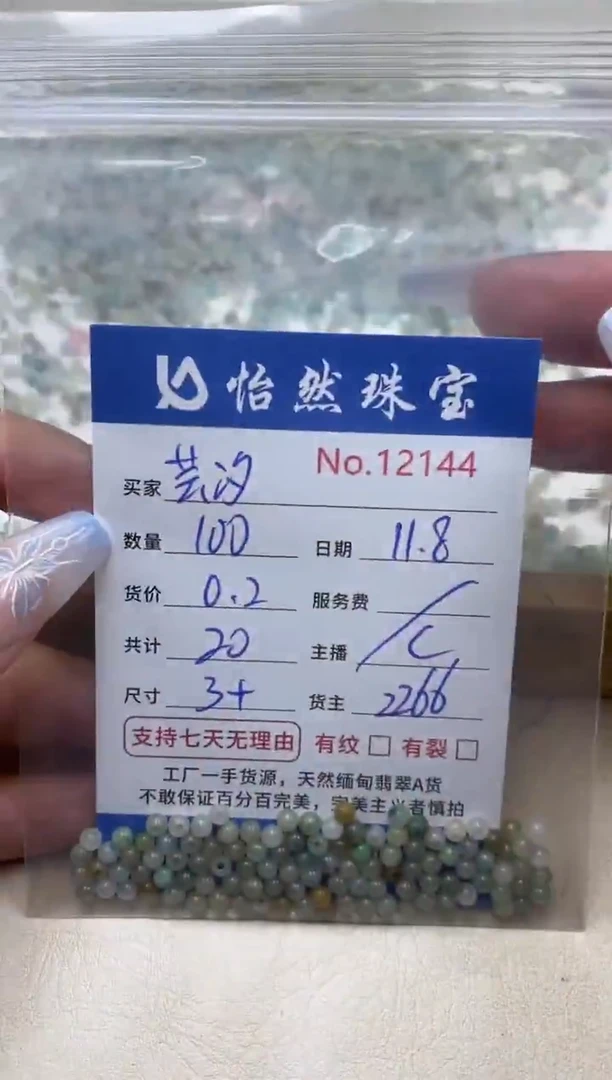 怡然珠宝
No.12144
买家 芸汐
数量 100 日期 11.8
货价 0.2 服务费 /
共计 20 主播 C
尺寸 3+ 货主 2266
支持七天无理由 有纹 □ 有裂 □
工厂一手货源，天然缅甸翡翠A货
不敢保证百分百完美，完美主义者慎拍